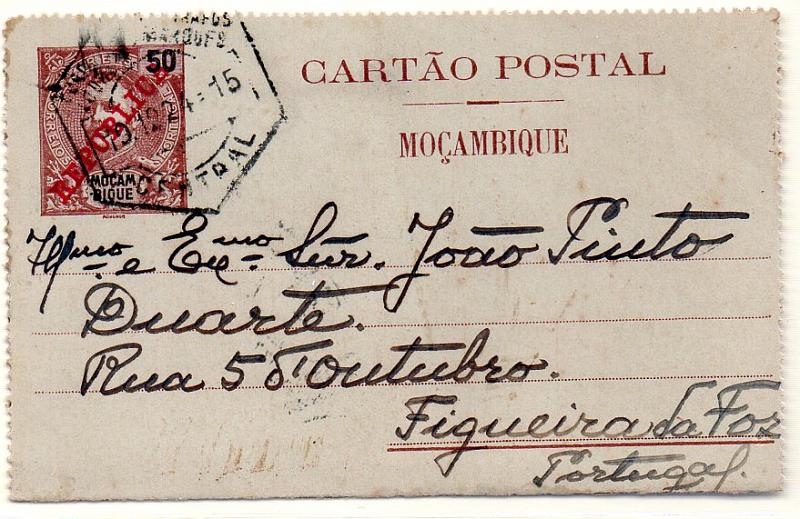 50
CORREIOS
REPUBLICA
MOÇAM
BIQUE
CENTRAL
CARTÃO POSTAL
MOÇAMBIQUE
Illmo. e Exmo. Snr. João Pinto
Duarte.
Rua 5 d'Outubro.
Figueira da Foz
Portugal.